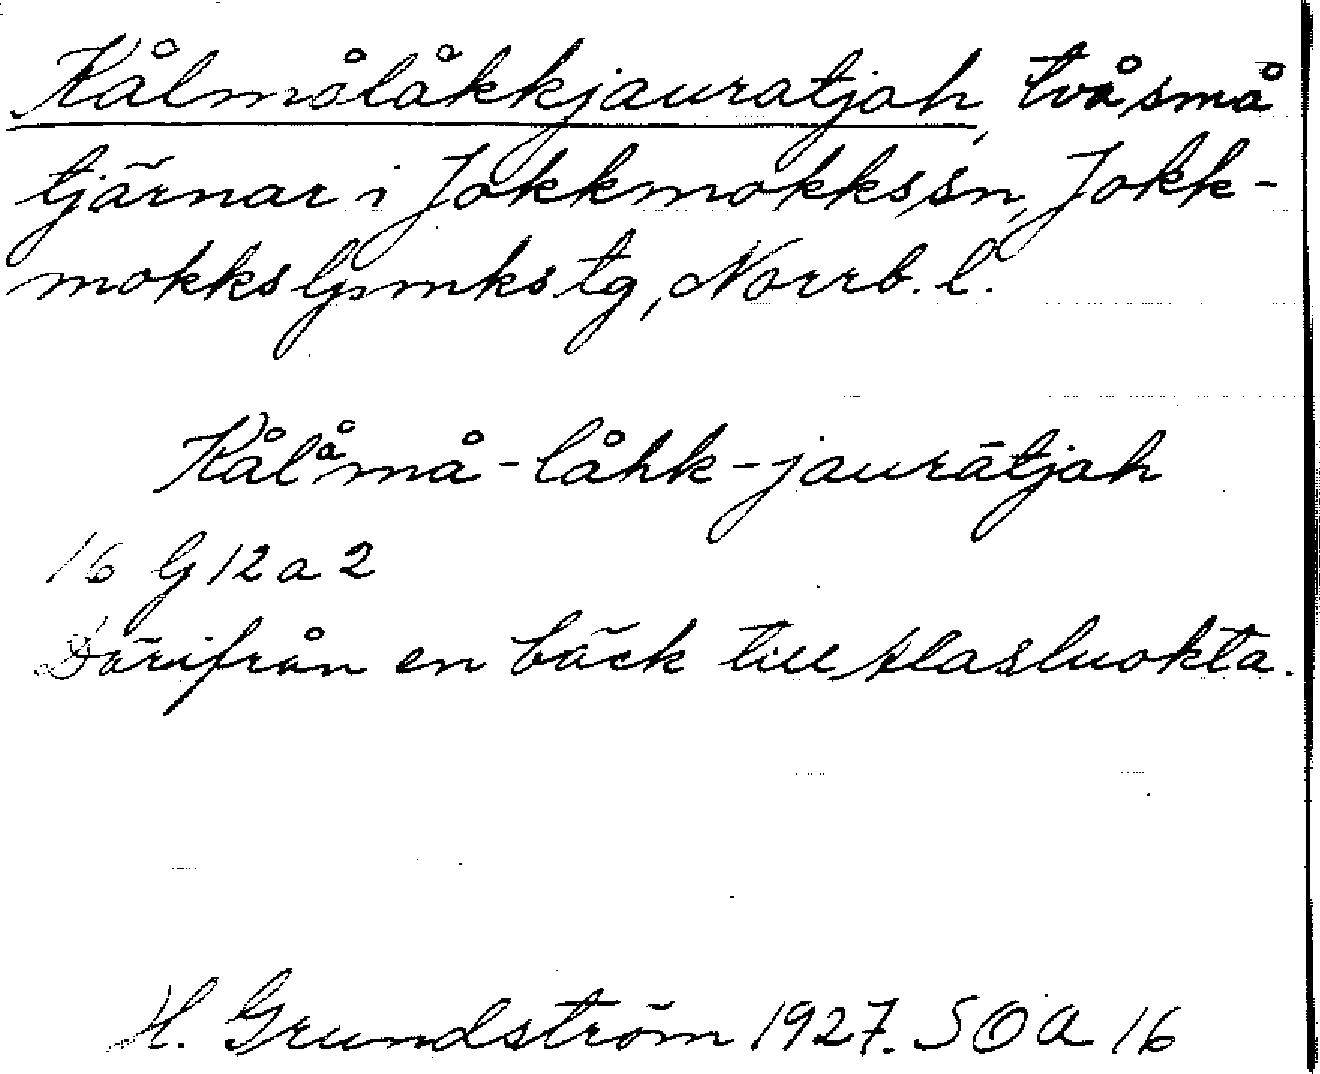 Kålmålåkkjauratjah, två små
tjärnar i Jokkmokks sn, Jokk-
mokks lpmks tg, Norrb. l.
Kålåmå-låhk-jaurātjah
16 G 12 a 2
Därifrån en bäck till Slasluokta.
H. Grundström 1927. SOA 16